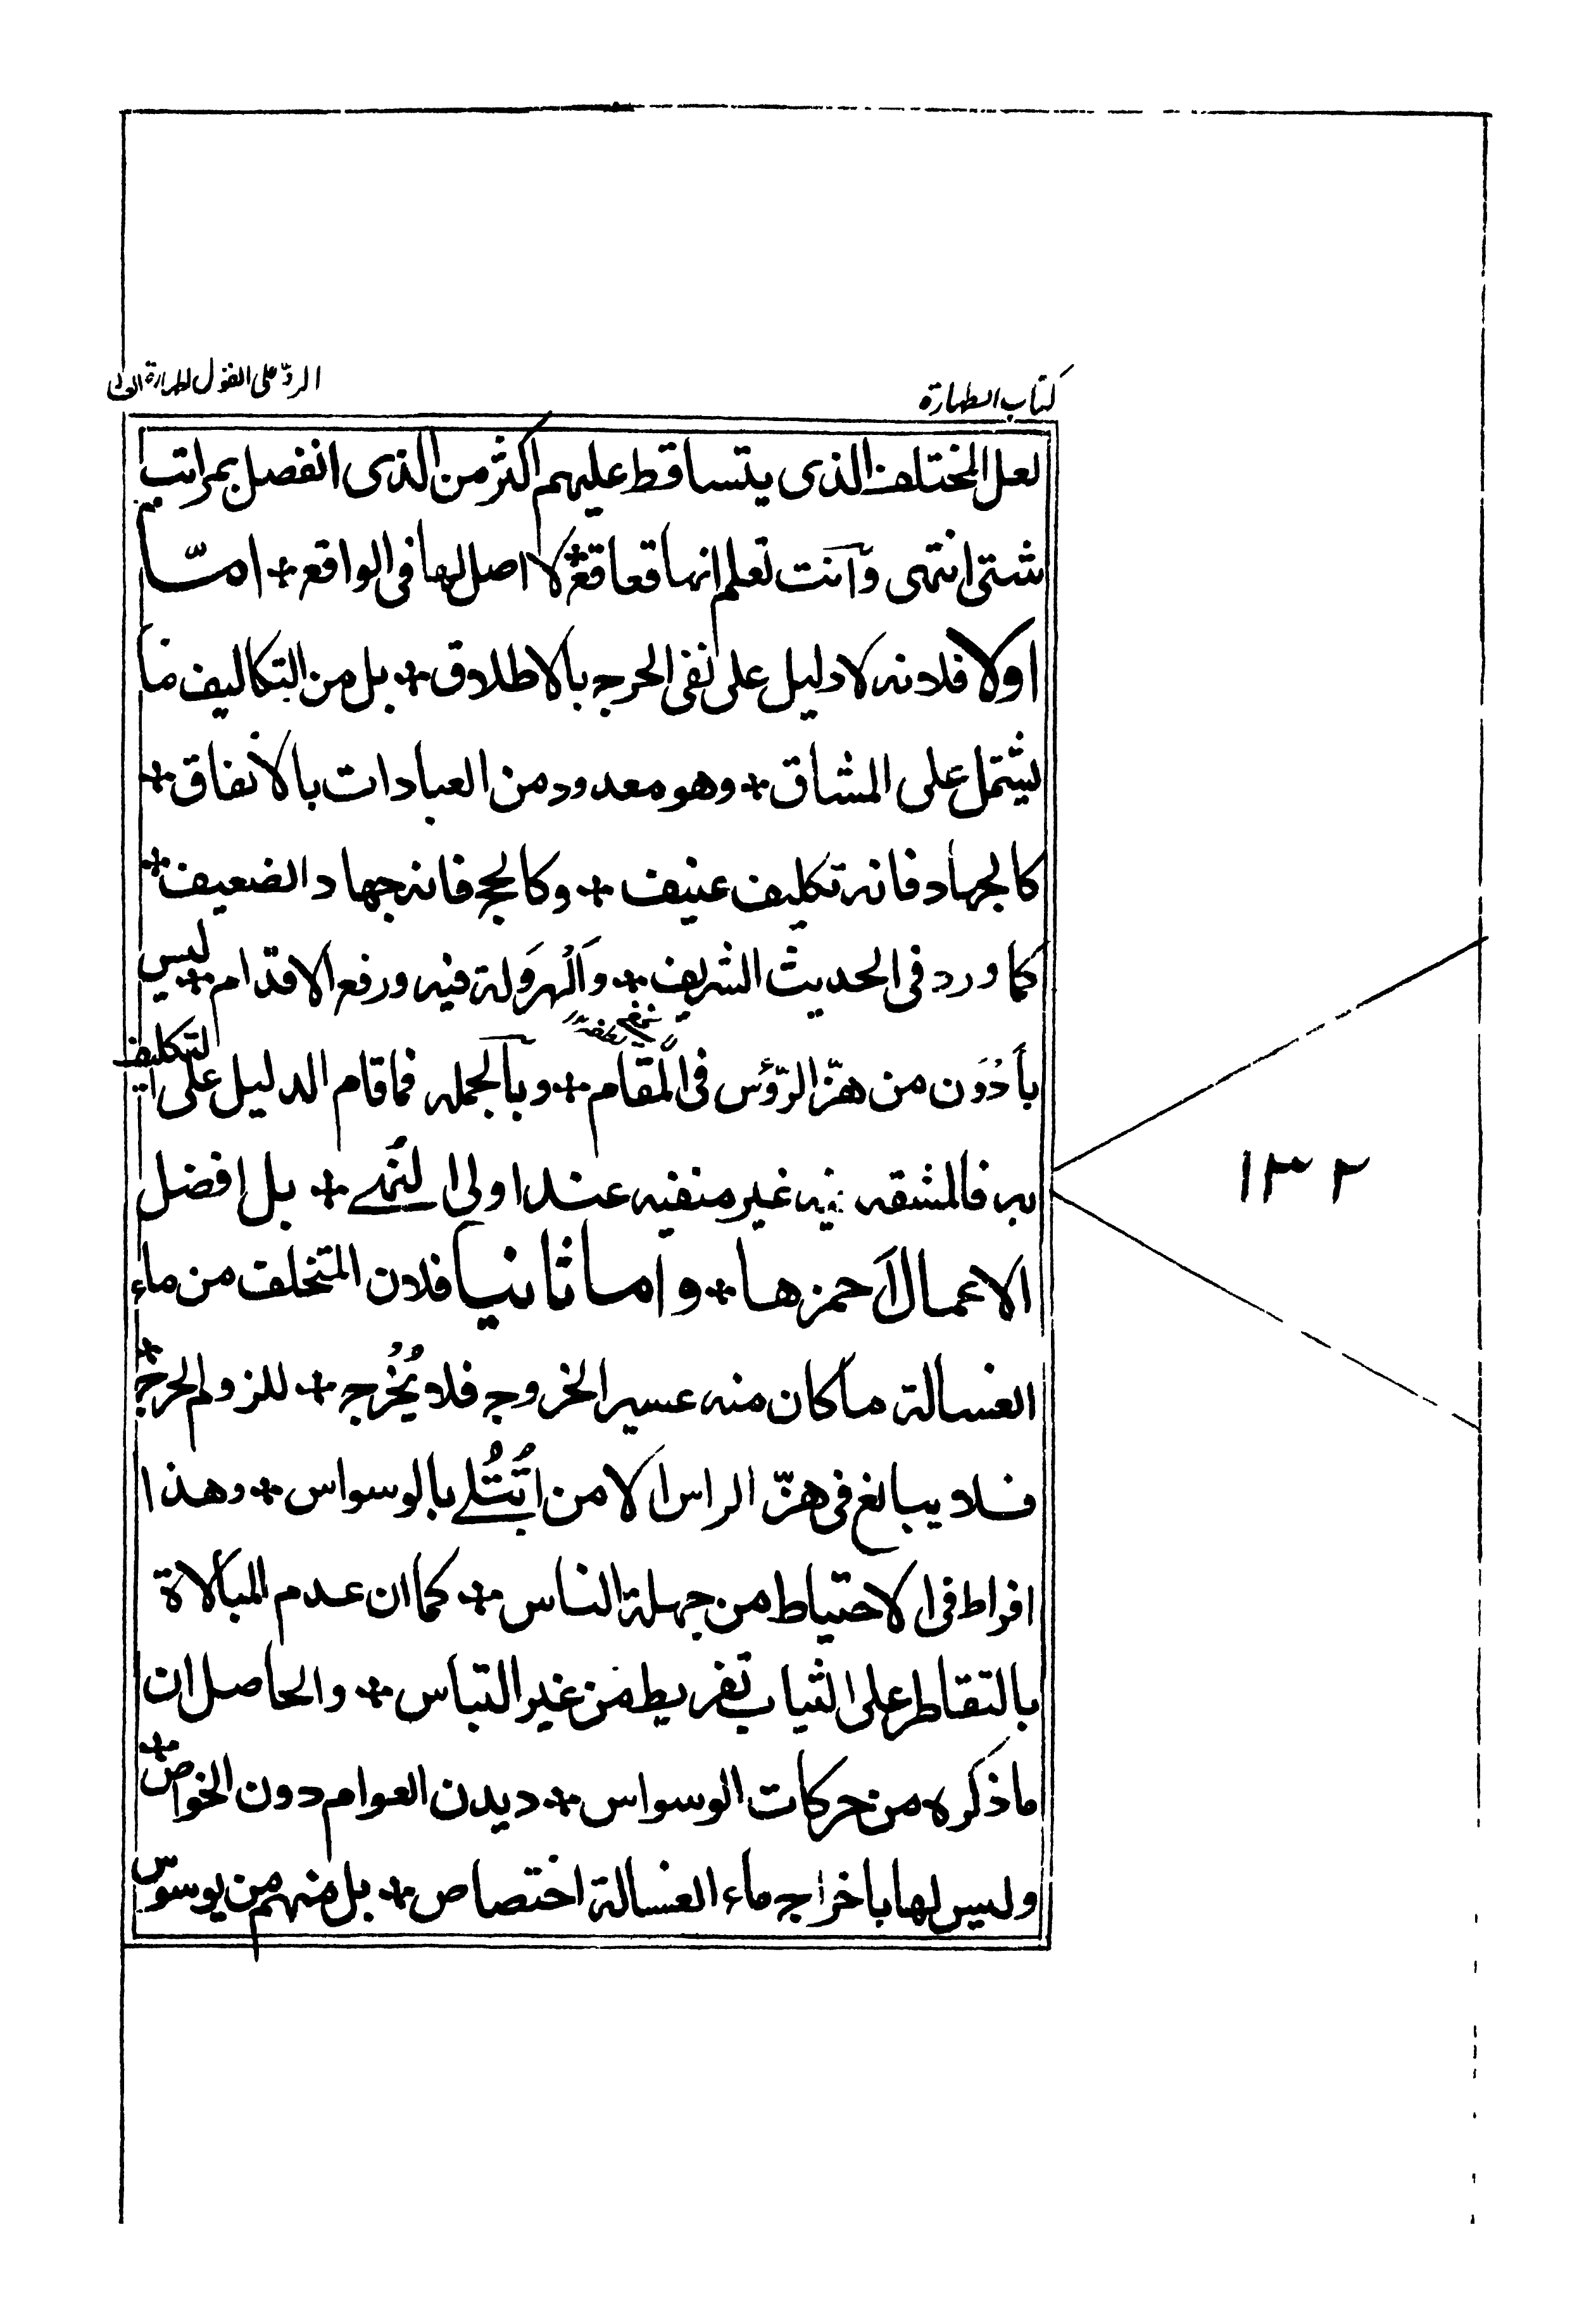 كتاب الطهارة
الردّ على القول بطهارة
لعل المختلف الذى يتساقط عليهم اكثر من الذى انفصل بمراتب
شتى انتهى وآنت تعلم انها قعاقع + لا اصل لها فى الواقع + امّا
اولا فلانه لا دليل على نفى الحرج بالاطلاق + بل من التكاليف ما
يشتمل على المشاق + وهو معدود من العبادات بالاتفاق +
كالجهاد فانه تكليف عنيف + وكالحج فانه جهاد الضعيف +
كما ورد فى الحديث الشريف + وَالْهروَلة فيه ورفع الاقدام + ليس
بأَدْوَن من هزّ الرّؤس فى المقام + وبالجمله فما قام الدليل على التكليف
به فالمشقه فيه غير منفيه عند اولى النُهى + بل افضل
الاعمال اَحمزها + واما ثانيا فلان المتخلف من ماء
الغسالة ما كان منه عسير الخروج فلا يُخْرج + للزوم الحرج +
فلا يبالغ فى هزّ الراس الا من ابْتُلى بالوسواس + وهذا
افراط فى الاحتياط من جهلة الناس + كما ان عدم المبالاة
بالتقاطر على الثياب تفريط من غير التباس + والحاصل ان
ما ذكره من حركات الوسواس + ديدن العوام دون الخواص +
وليس لها باخراج ماء الغسالة اختصاص + بل منهم من يوسوس
١٣٢